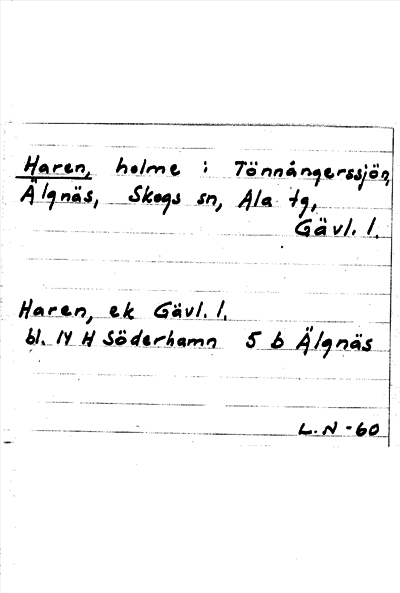 Haren, holme i Tönnångerssjön,
Älgnäs, Skogs sn, Ala tg,
Gävl. l.
Haren, ek Gävl. l.
bl. 14 H Söderhamn 5 b Älgnäs
L. N -60